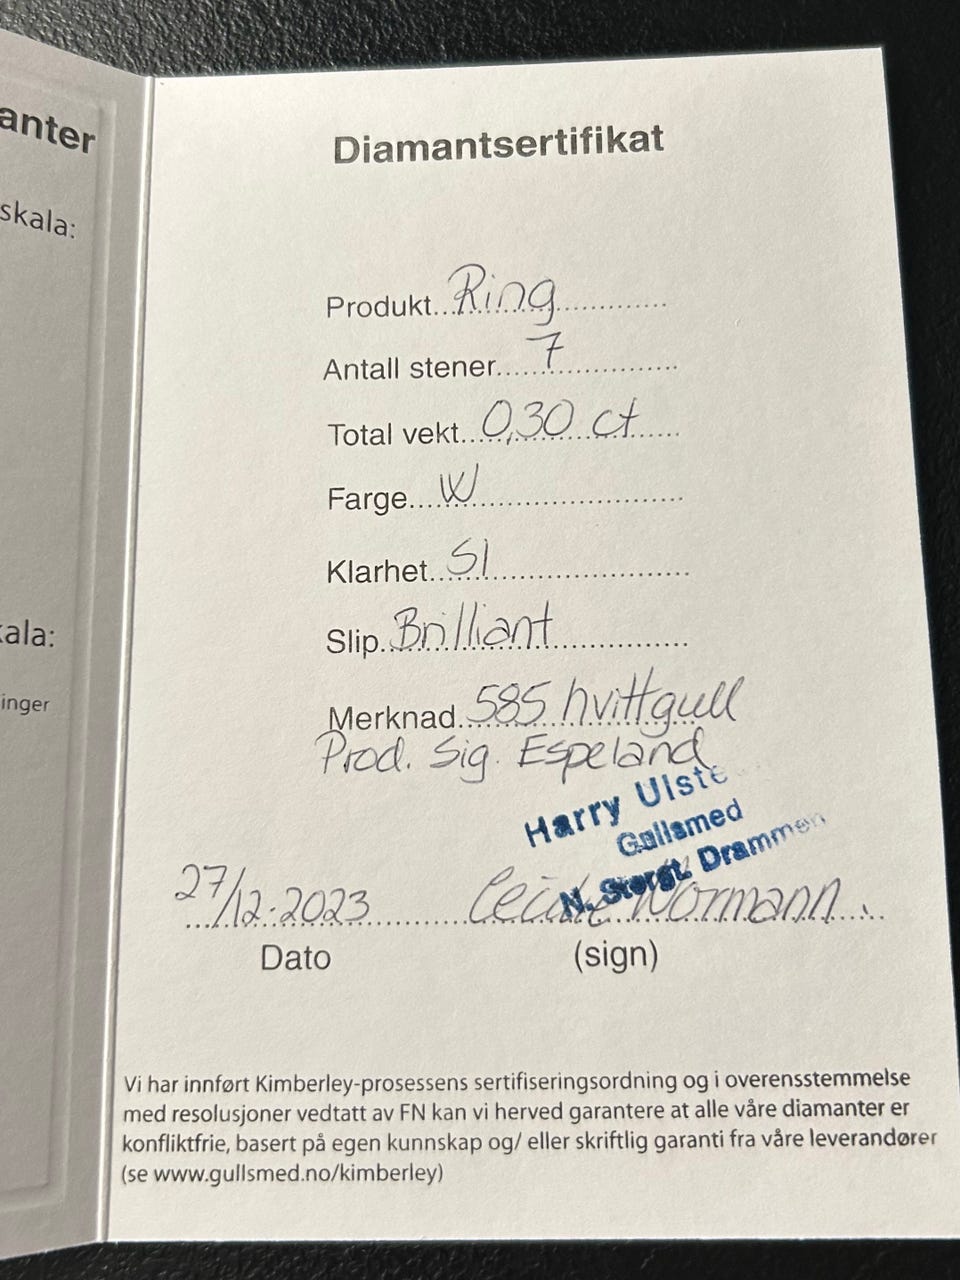 anter
skala:
kala:
inger
Diamantsertifikat
Produkt...Ring
Antall stener...7
Total vekt...0,30 ct
Farge...W
Klarhet...SI
Slip...Brilliant
Merknad...585 hvittgull
Prod. Sig. Espeland
Harry Ulste
Gullsmed
N. Storgt. Drammen
27/12-2023
Normann
Dato
(sign)
Vi har innført Kimberley-prosessens sertifiseringsordning og i overensstemmelse
med resolusjoner vedtatt av FN kan vi herved garantere at alle våre diamanter er
konfliktfrie, basert på egen kunnskap og/ eller skriftlig garanti fra våre leverandører
(se www.gullsmed.no/kimberley)